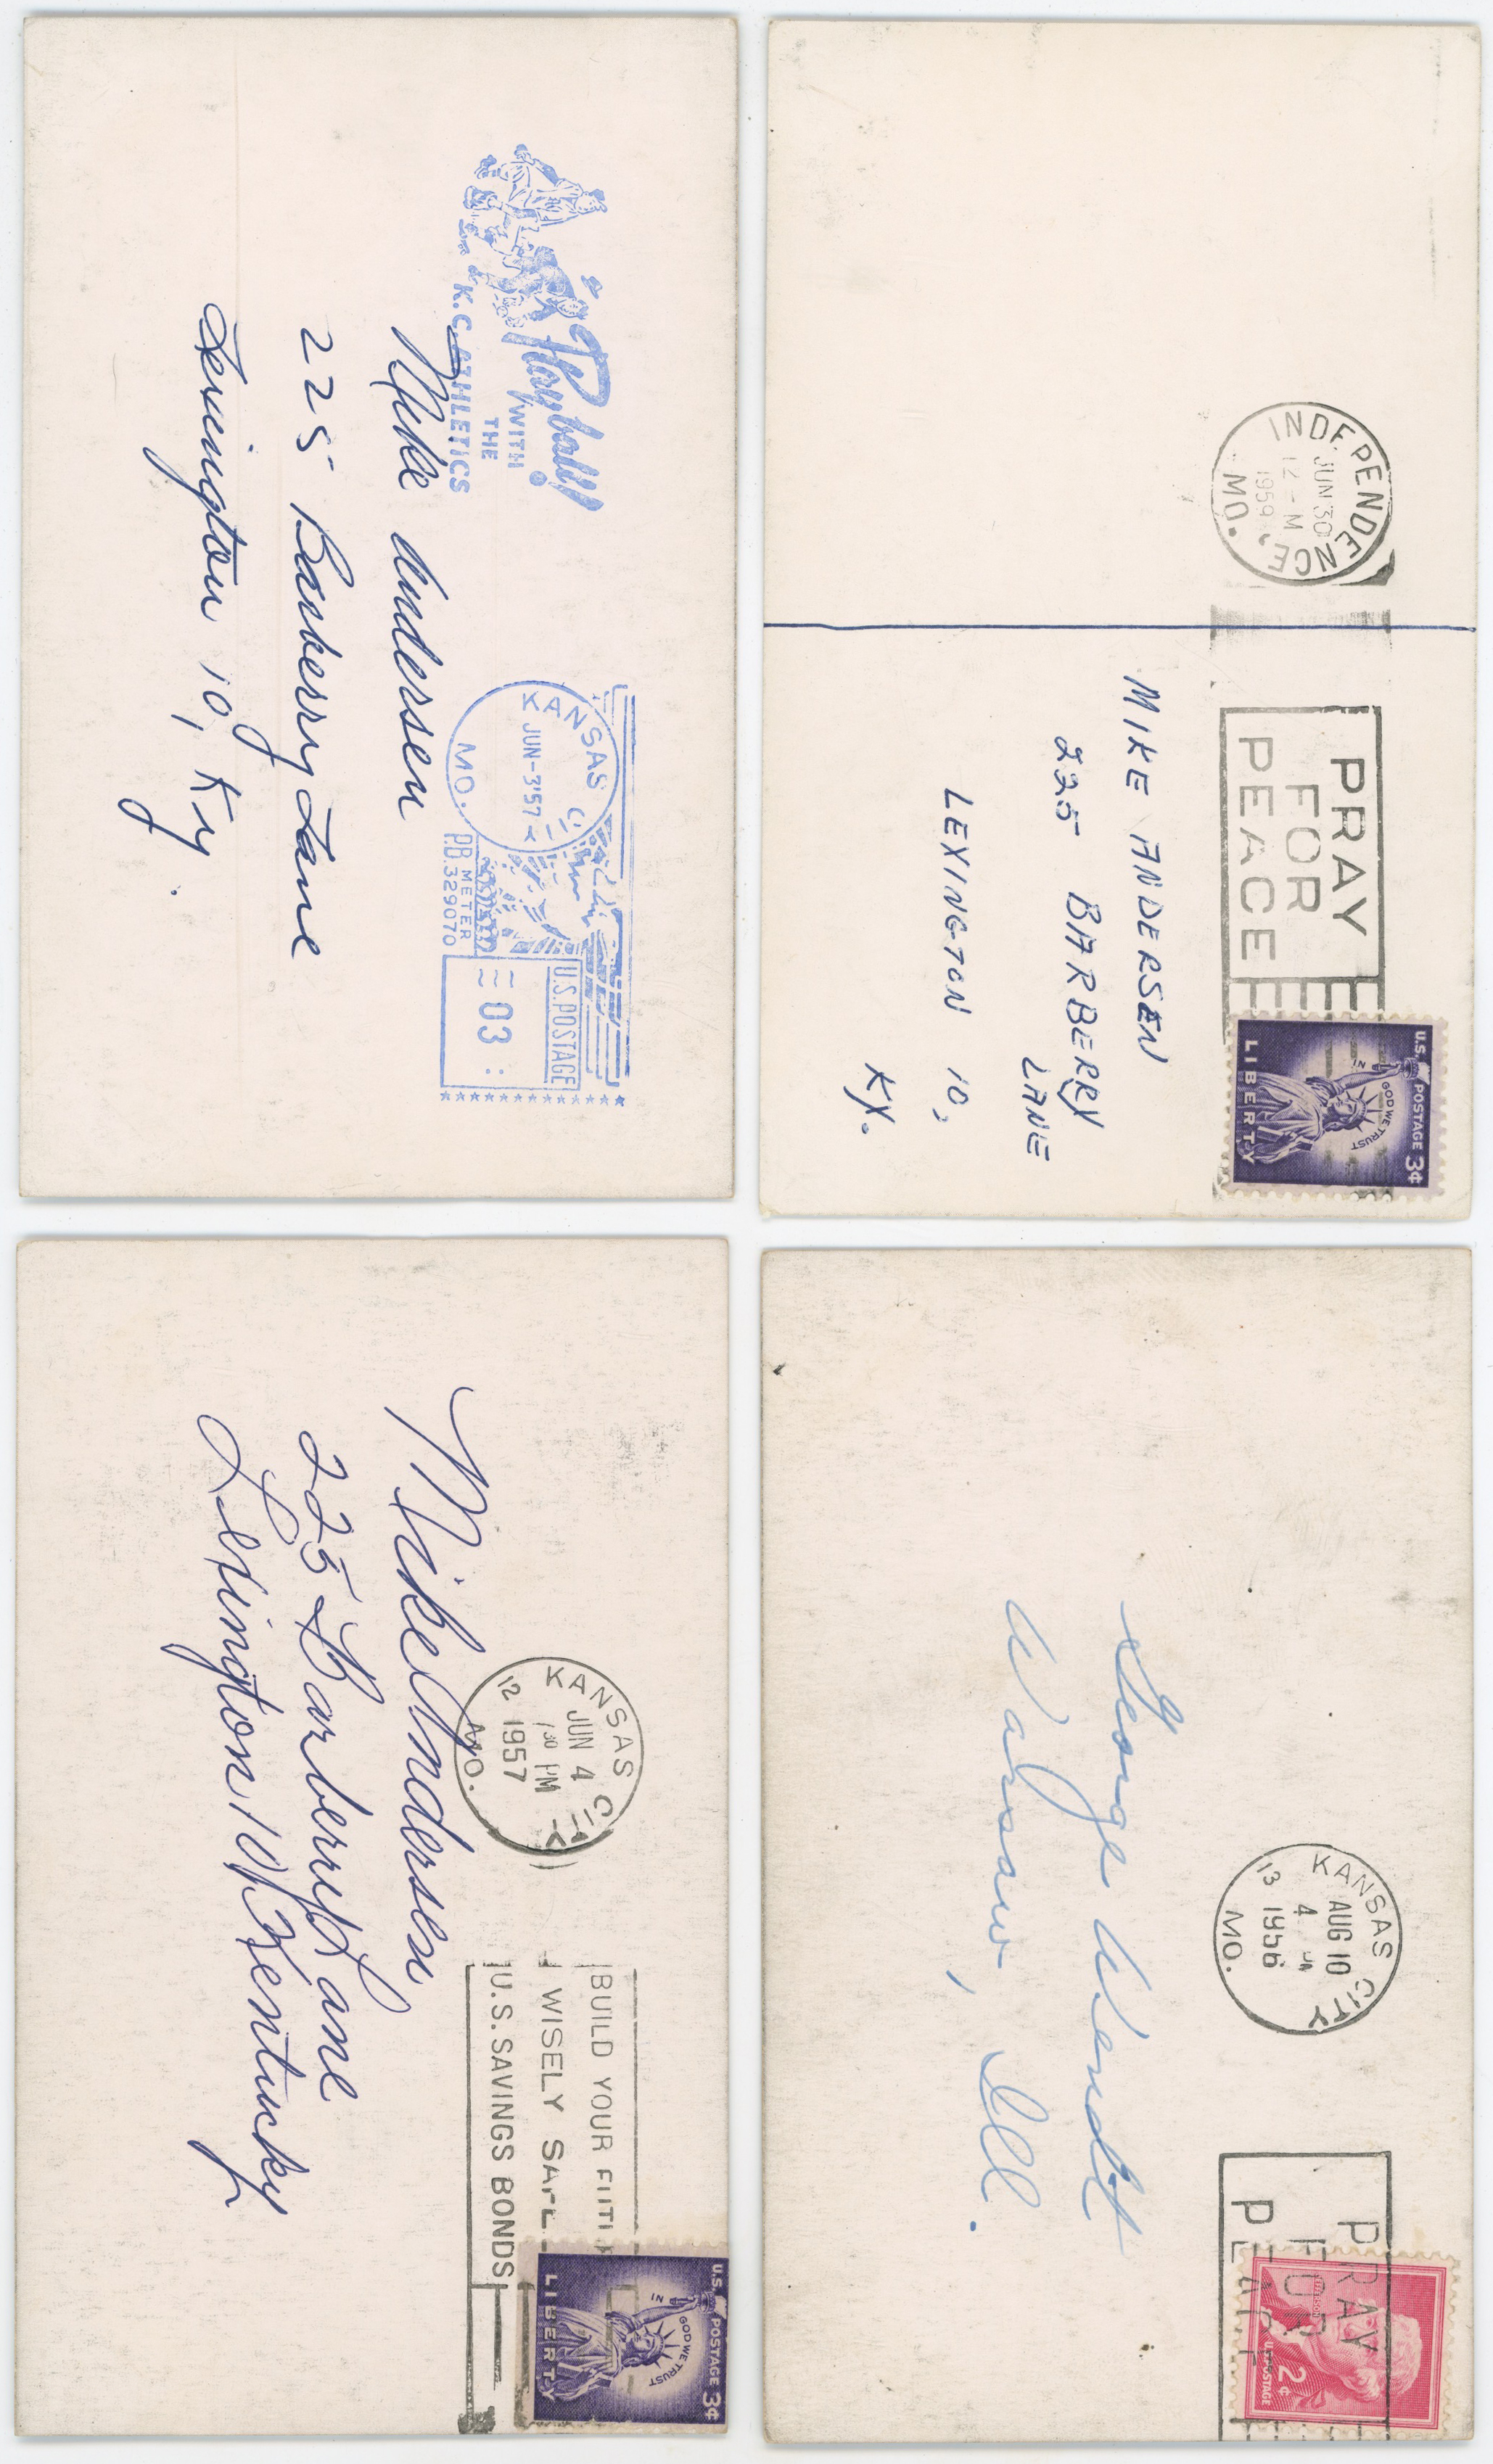 "Play ball!
WITH
THE
K.C. ATHLETICS
KANSAS CITY
JUN-3'57
MO.
P.B. METER
P.B.329070
U.S. POSTAGE
03
Mike Andersen
225 Barberry Lane
Lexington 10, Ky.
INDEPENDENCE
JUN 30
12 - M
1959
MO.
PRAY
FOR
PEACE
U.S. POSTAGE 3¢
IN GOD WE TRUST
LIBERTY
MIKE ANDERSEN
225 BARBERRY
LANE
LEXINGTON 10,
KY.
KANSAS CITY
JUN 4
1 30 PM
12 1957
MO.
BUILD YOUR
WISELY
U.S. SAVINGS BONDS
U.S. POSTAGE 3¢
IN GOD WE TRUST
LIBERTY
Mike Andersen
225 Barberry Lane
Lexington 10, Kentucky
KANSAS CITY
AUG 10
4
13 1956
MO.
PRAY
FOR
PEACE
2¢
U.S. POSTAGE
George Wendt
Warsaw, Ill.